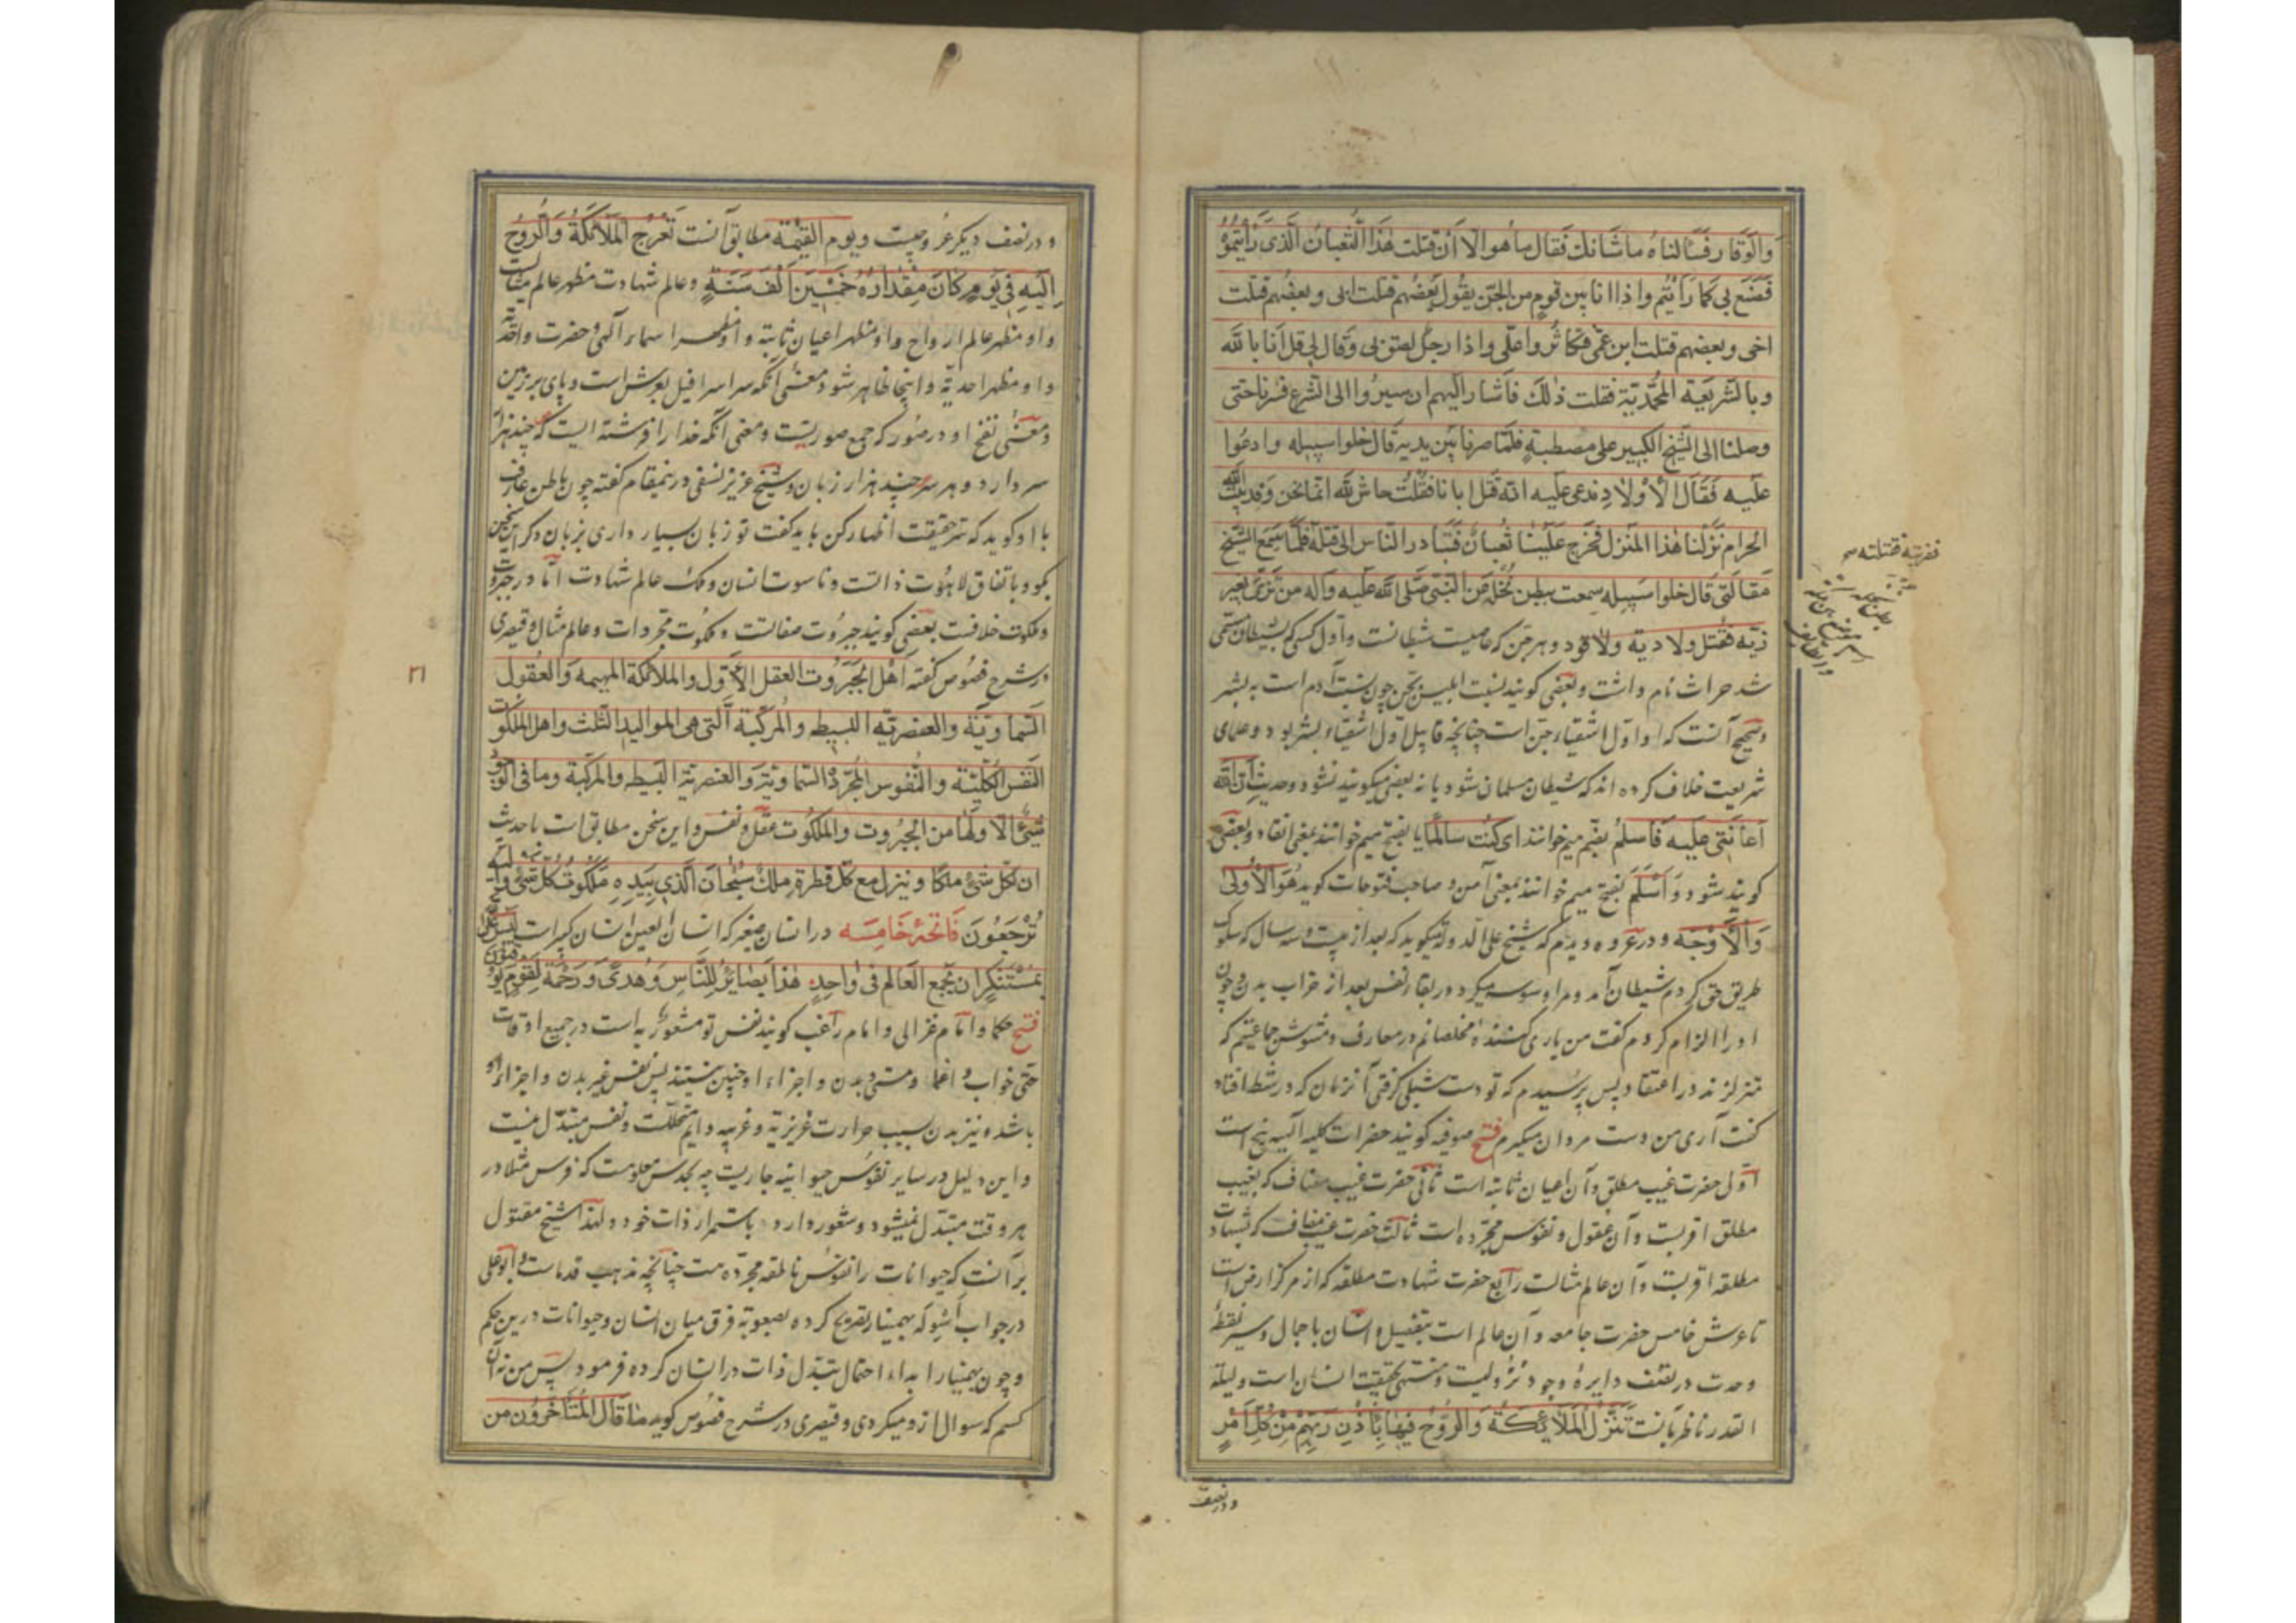 والوقار فسألناه ما شانك فقال ما هو الا ان قتلت هذا الثعبان الذی رایتموه
فصنع بی کما رایتم واذا انا بین قوم من الجن یقول بعضهم قتلت ابی وبعضهم قتلت
اخی وبعضهم قتلت ابن عمی فتکاثروا علی واذا رجل لصق بی وقال لی قل انا بالله
وبالشریعة المحمدیة فقلت ذلك فاشار الیهم ان سیروا الی الشرع فسرنا حتی
وصلنا الی الشیخ الکبیر علی مصطبة فلما صرنا بین یدیه قال خلوا سبیله وادعوا
علیه فقال الاولاد ندعی علیه انه قتل ابانا فقلت حاش لله انما نحن وفد بیت الله
الحرام نزلنا هذا المنزل فخرج علینا ثعبان فتبادر الناس الی قتله فلما سمع الشیخ
مقالتی قال خلوا سبیله سمعت ببطن نخلة من النبی صلی الله علیه وآله من تزیی بغیر
زیه فقتل ولا دیة ولا قود وهر جن که عاصیست شیطانست واول کسی که بشیطان مسمی
شد حراث نام داشت وبعضی کویند نسبت ابلیس بجن چون نسبت آدم است به بشر
وصحیح آنست که او اول اشقیاء جن است چنانچه قابیل اول اشقیاء بشر بود وعلمای
شریعت خلاف کرده اند که شیطان مسلمان شود یا نه بعضی میکویند نشود وحدیث ان الله
اعاننی علیه فاسلم بضم میم خوانند ای کنت سالما یا بفتح میم خوانند بمعنی انقاد وبعضی
کویند شود و اسلم بفتح میم خوانند بمعنی آمن و صاحب فتوحات کوید هو الاولی
والاوجه ودر عروه دیدم که شیخ علاء الدوله میکوید که بعد از بیست وسه سال که سلوک
طریق حق کردم شیطان آمد ومرا وسوسه میکرد در بقاء نفس بعد از خراب بدن وچون
او را الزام کردم کفت من یاری کننده مخلصانم در معارف ومشوش جماعتیم که
متزلزلند در اعتقاد پس پرسیدم که تو دست شبلی کرفتی آن زمان که در شط افتاد
کفت آری من دست مردان میکیرم فتح صوفیه کویند حضرات کلیه الهیه پنج است
اول حضرت غیب مطلق وآن اعیان ثابته است ثانی حضرت غیب مضاف که بغیب
مطلق اقربست وآن عقول ونفوس مجرده است ثالث حضرت غیب مضاف که بشهادت
مطلقه اقربست وآن عالم مثالست رابع حضرت شهادت مطلقه که از مرکز ارض است
تا عرش خامس حضرت جامعه وآن عالم است بتفصیل وانسان باجمال وسیر نقطه
وحدت در نصف دایره وجود نزولیست ومنتهی بحقیقت انسان است ولیلة
القدر ناظر بآنست تنزل الملائکة والروح فیها باذن ربهم من کل امر
ودر نصف
فضربته فقتلته
ودر نصف دیکر عروجیست ویوم القیمة مطابق آنست تعرج الملائکة والروح
الیه فی یوم کان مقداره خمسین الف سنة وعالم شهادت مظهر عالم مثالست
واو مظهر عالم ارواح واو مظهر اعیان ثابته واو مظهر اسماء الهی وحضرت واحدیه
واو مظهر احدیة واینجا ظاهر شود معنی انکه سر اسرافیل بعرش است وپای بر زمین
ومعنی نفخ او در صور که جمع صورتست ومعنی آنکه خدا را فرشته ایست که چند هزار
سر دارد وهر سر چند هزار زبان وشیخ عزیز نسفی درینمقام کفته چون باطن عارف
با او کوید که سر حقیقت اظهار کن باید کفت تو زبان بسیار داری بزبان دکر این سخن
بکو وباتفاق لاهوت ذاتست وناسوت انسان وملک عالم شهادت اما در جبروت
وملکوت خلافست بعضی کویند جبروت صفاتست وملکوت مجردات وعالم مثال وقیصری
در شرح فصوص کفته اهل الجبروت العقل الاول والملائکة المهیمه والعقول
السماویة والعنصریة البسیطه والمرکبة التی هی الموالید الثلث واهل الملکوت
النفس الکلیة والنفوس المجردة السماویة والعنصریة البسیطه والمرکبة وما فی الوجود
شیء الا ولها من الجبروت والملکوت عقل ونفس واین سخن مطابق است باحدیث
ان لکل شیء ملکا وینزل مع کل قطرة ملك سبحان الذی بیده ملکوت کل شیء والیه
ترجعون فاتحۀ خامسه در انسان صغیر که انسان العین انسان کبیر است لیس علی الله
بمستنکر ان یجمع العالم فی واحد هذا بصائر للناس وهدی ورحمة لقوم یوقنون
فتح حکما وامام غزالی وامام راغب کویند نفس تو مشعور به است در جمیع اوقات
حتی خواب واغما ومستی وبدن واجزاء او چنین نیستند پس نفس غیر بدن واجزاء او
باشد ونیز بدن بسبب حرارت غریزیه وغریبه دایم متحللست ونفس متبدل نیست
واین دلیل در سایر نفوس حیوانیه جاریست چه بحدس معلومست که فرس مثلا در
هر وقت متبدل نمیشود وشعور دارد باستمرار ذات خود ولهذا شیخ مقتول
بر آنست که حیوانات را نفوس ناطقه مجرده هست چنانچه مذهب قدماست وابو علی
در جواب اسئوله بهمنیار تصریح کرده بصعوبة فرق میان انسان وحیوانات درین حکم
وچون بهمنیار ابداء احتمال تبدل ذات در انسان کرده فرمود پس من نه آن
کسم که سوال ازو میکردی وقیصری در شرح فصوص کوید ما قال المتاخرون من
۲۱